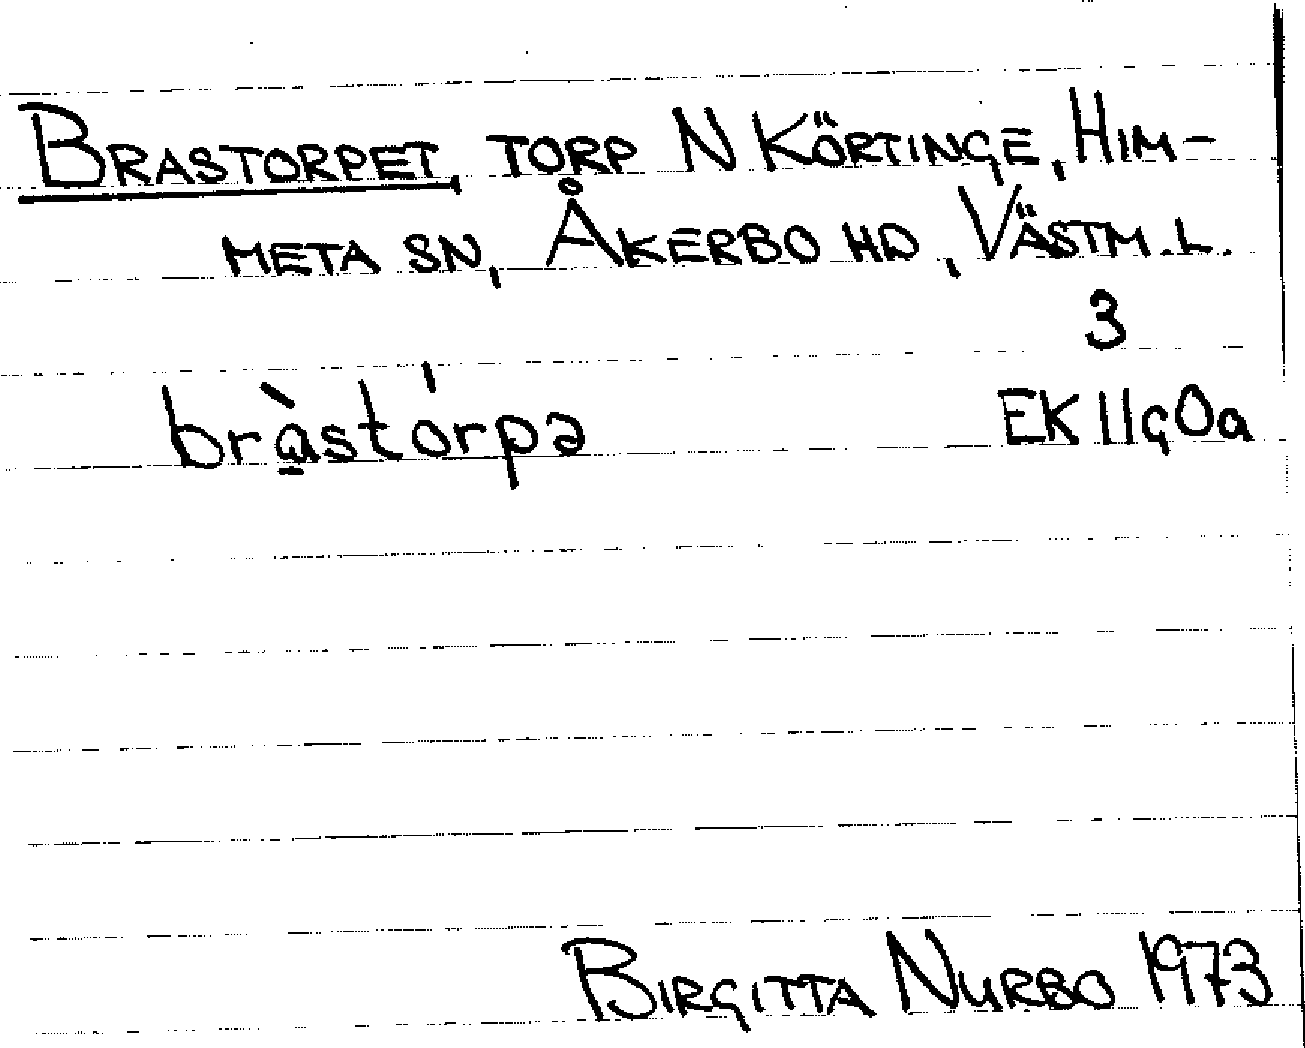 BRASTORPET, TORP N KÖRTINGE, HIM-
META SN, ÅKERBO HD, VÄSTM.L.
3
brà̱stˈórpə EK 11g0a
BIRGITTA NURBO 1973